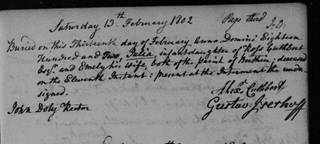 Saturday 13th February 1802 Page third
Buried on this Thirteenth day of February Anno Domini Eighteen
Hundred and Two, Julia infant daughter of Ross Cuthbert
Esqr. and Emely his wife both of the parish of Berthier; deceased
on the Eleventh Instant: present at the Interment the under
signed.
Alexr. Cuthbert
John Doty Rector